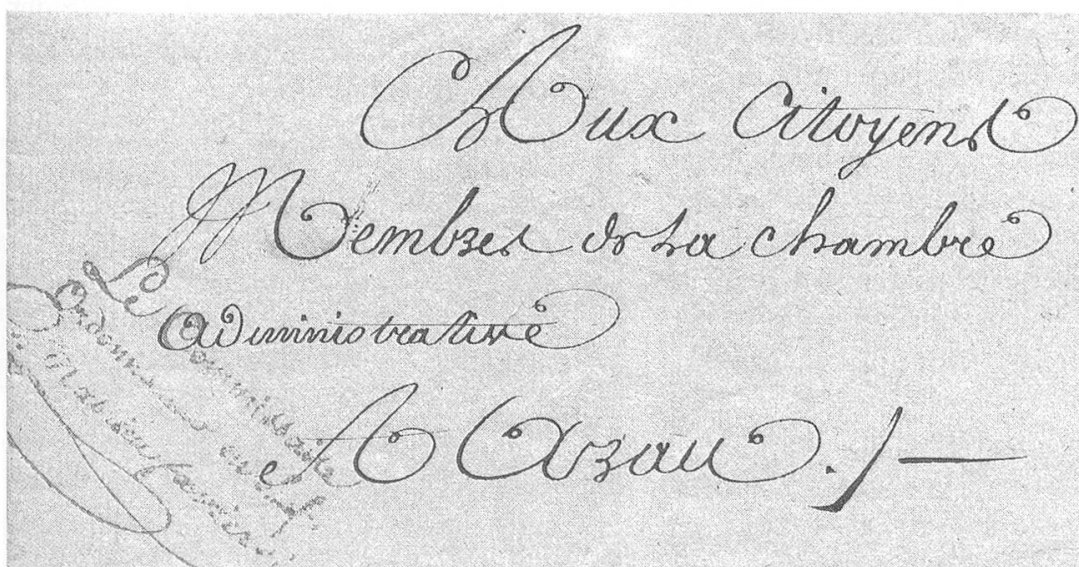 Aux Citoyens
Membres de La chambre
Administrative
A Arau ./—
Le Commissaire
Ordonnateur en chef
Mathieu Faviers